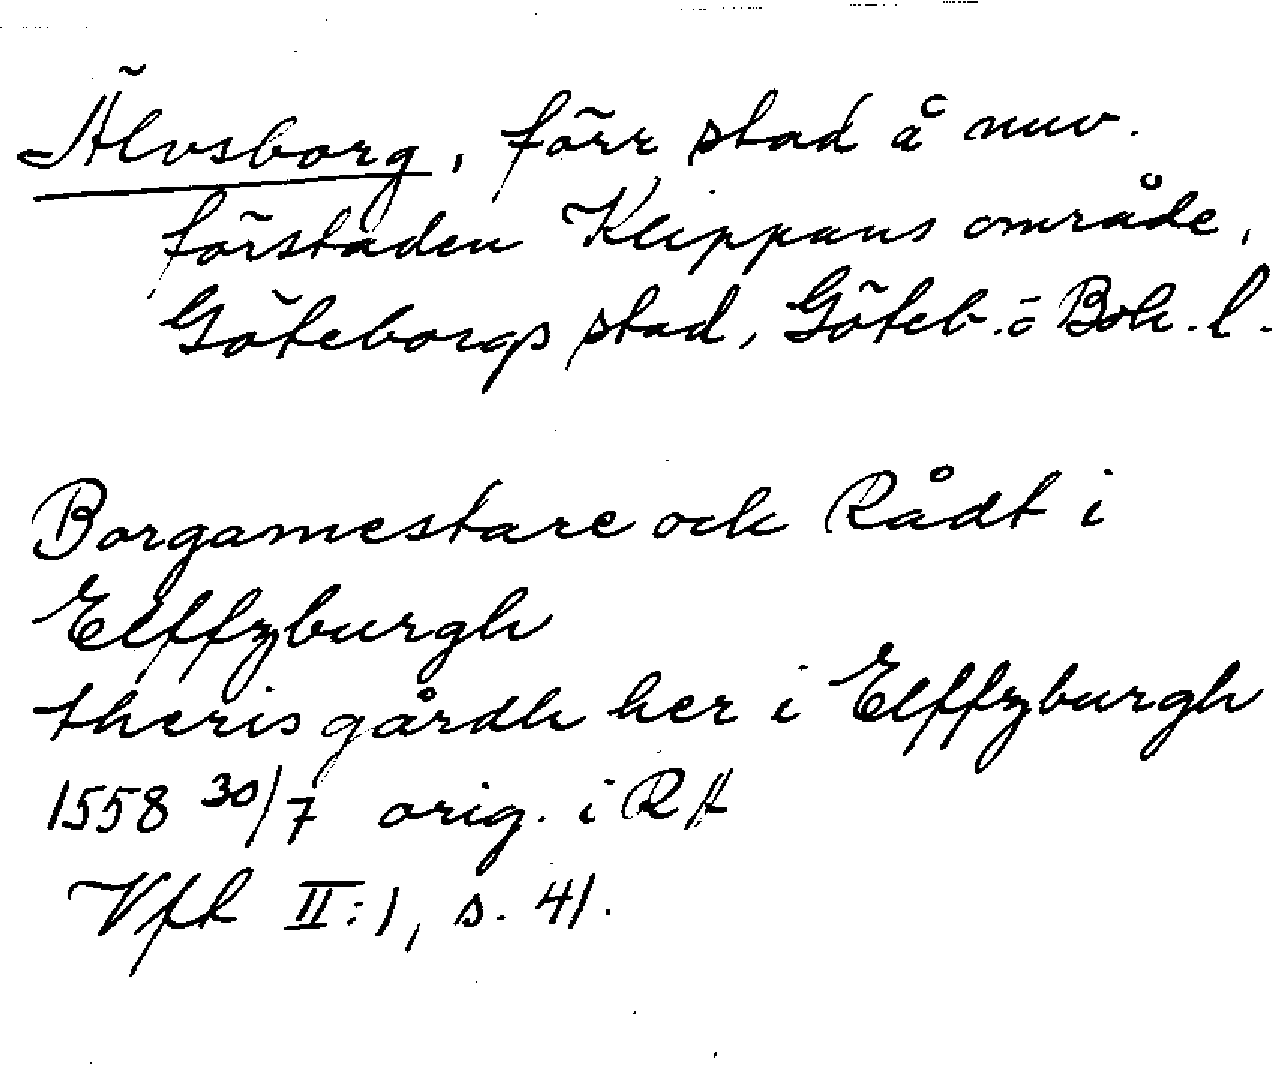 Älvsborg, förr stad å nuv.
förstaden Klippans område,
Göteborgs stad, Göteb. o Boh. l.
Borgamestare och Rådt i
Elffzburgh
theris gårdh her i Elffzburgh
1558 30/7 orig. i RA
Vfh II:1, s. 41.